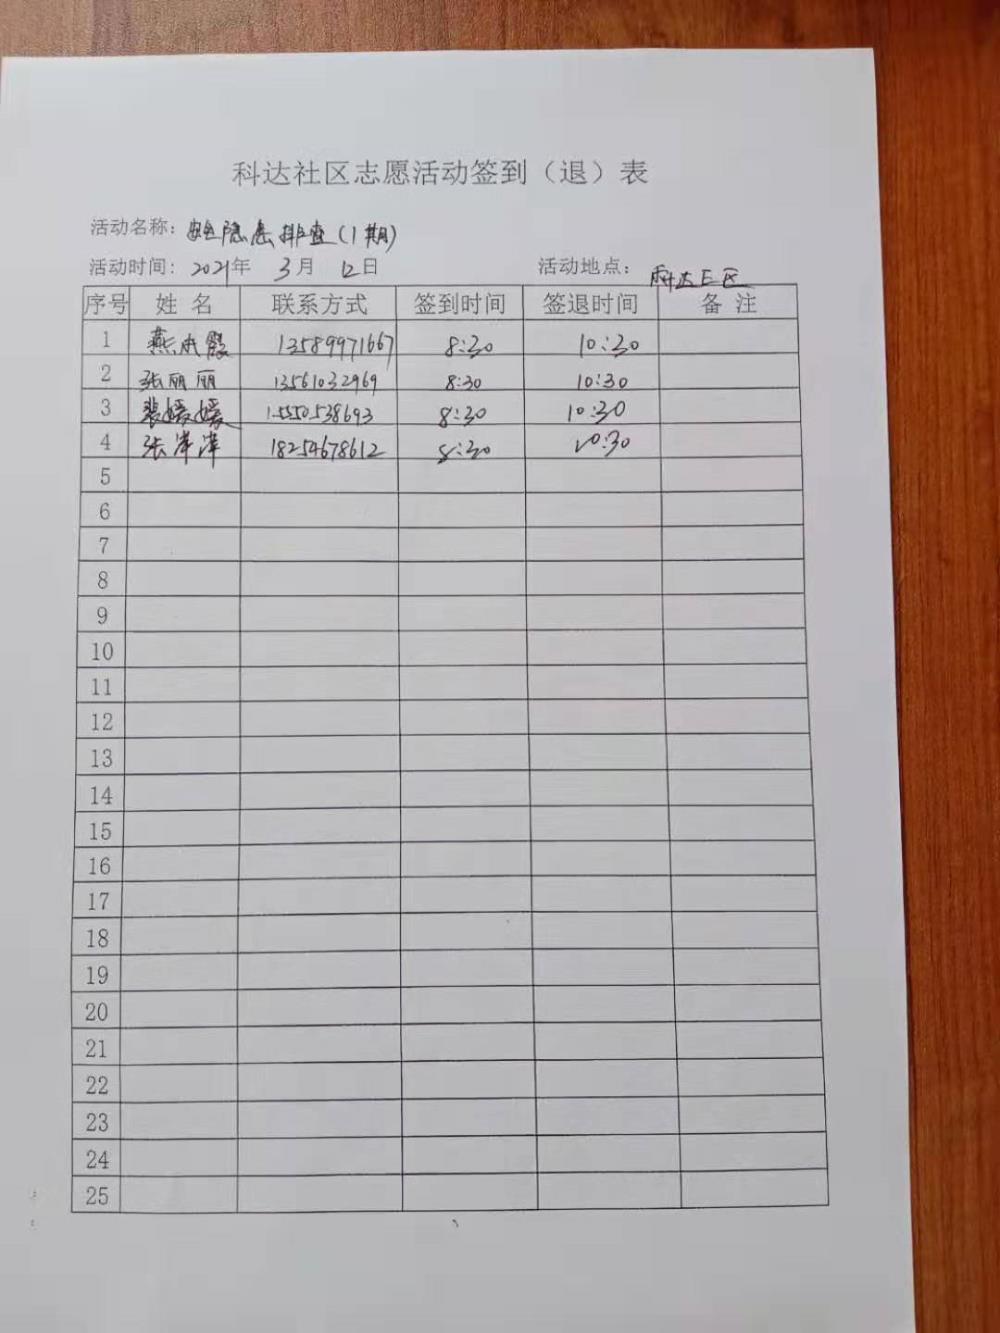 科达社区志愿活动签到（退）表
活动名称：安全隐患排查(1期)
活动时间：2021年 3月 12日 活动地点：科达E区
序号 姓 名 联系方式 签到时间 签退时间 备 注
1 燕霞 13589971667 8:30 10:30
2 张丽丽 13561032969 8:30 10:30
3 裴媛媛 15550538693 8:30 10:30
4 张 18254678612 8:30 10:30
5
6
7
8
9
10
11
12
13
14
15
16
17
18
19
20
21
22
23
24
25